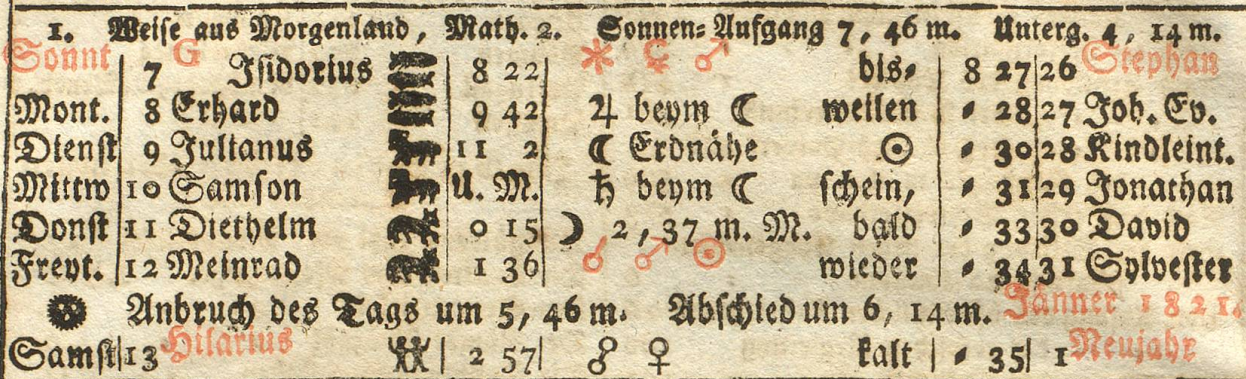 1. Weise aus Morgenland, Math. 2. Sonnen-Aufgang 7, 46 m. Unterg. 4, 14 m.
Sonnt 7 G Isidorius 8 22 ⚹ ☿ ♂ bis- 8 27 26 Stephan
Mont. 8 Erhard 9 42 ♃ beym ☾ weilen - 28 27 Joh. Ev.
Dienst 9 Julianus 11 2 ☾ Erdnähe ☉ - 30 28 Kindleint.
Mittw 10 Samson U. M. ♄ beym ☾ schein, - 31 29 Jonathan
Donst 11 Diethelm 0 15 ☽ 2, 37 m. M. bald - 33 30 David
Freyt. 12 Meinrad 1 36 ☌ ♂ ☉ wieder - 34 31 Sylvester
Anbruch des Tags um 5, 46 m. Abschied um 6, 14 m. Jänner 1821.
Samst 13 Hilarius 2 57 ☍ ♀ kalt - 35 1 Neujahr